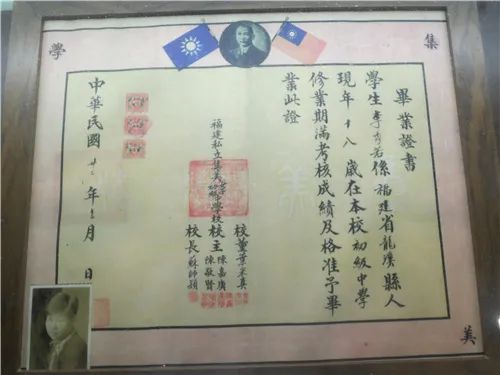 集
美
學
畢業證書
學生李秀若係福建省龍溪縣人
現年十八歲在本校初級中學
修業期滿考核成績及格准予畢
業此證
校董葉采真
福建私立集美初級中學校校主陳嘉庚
陳敬賢
校長蘇師穎
中華民國廿二年月日